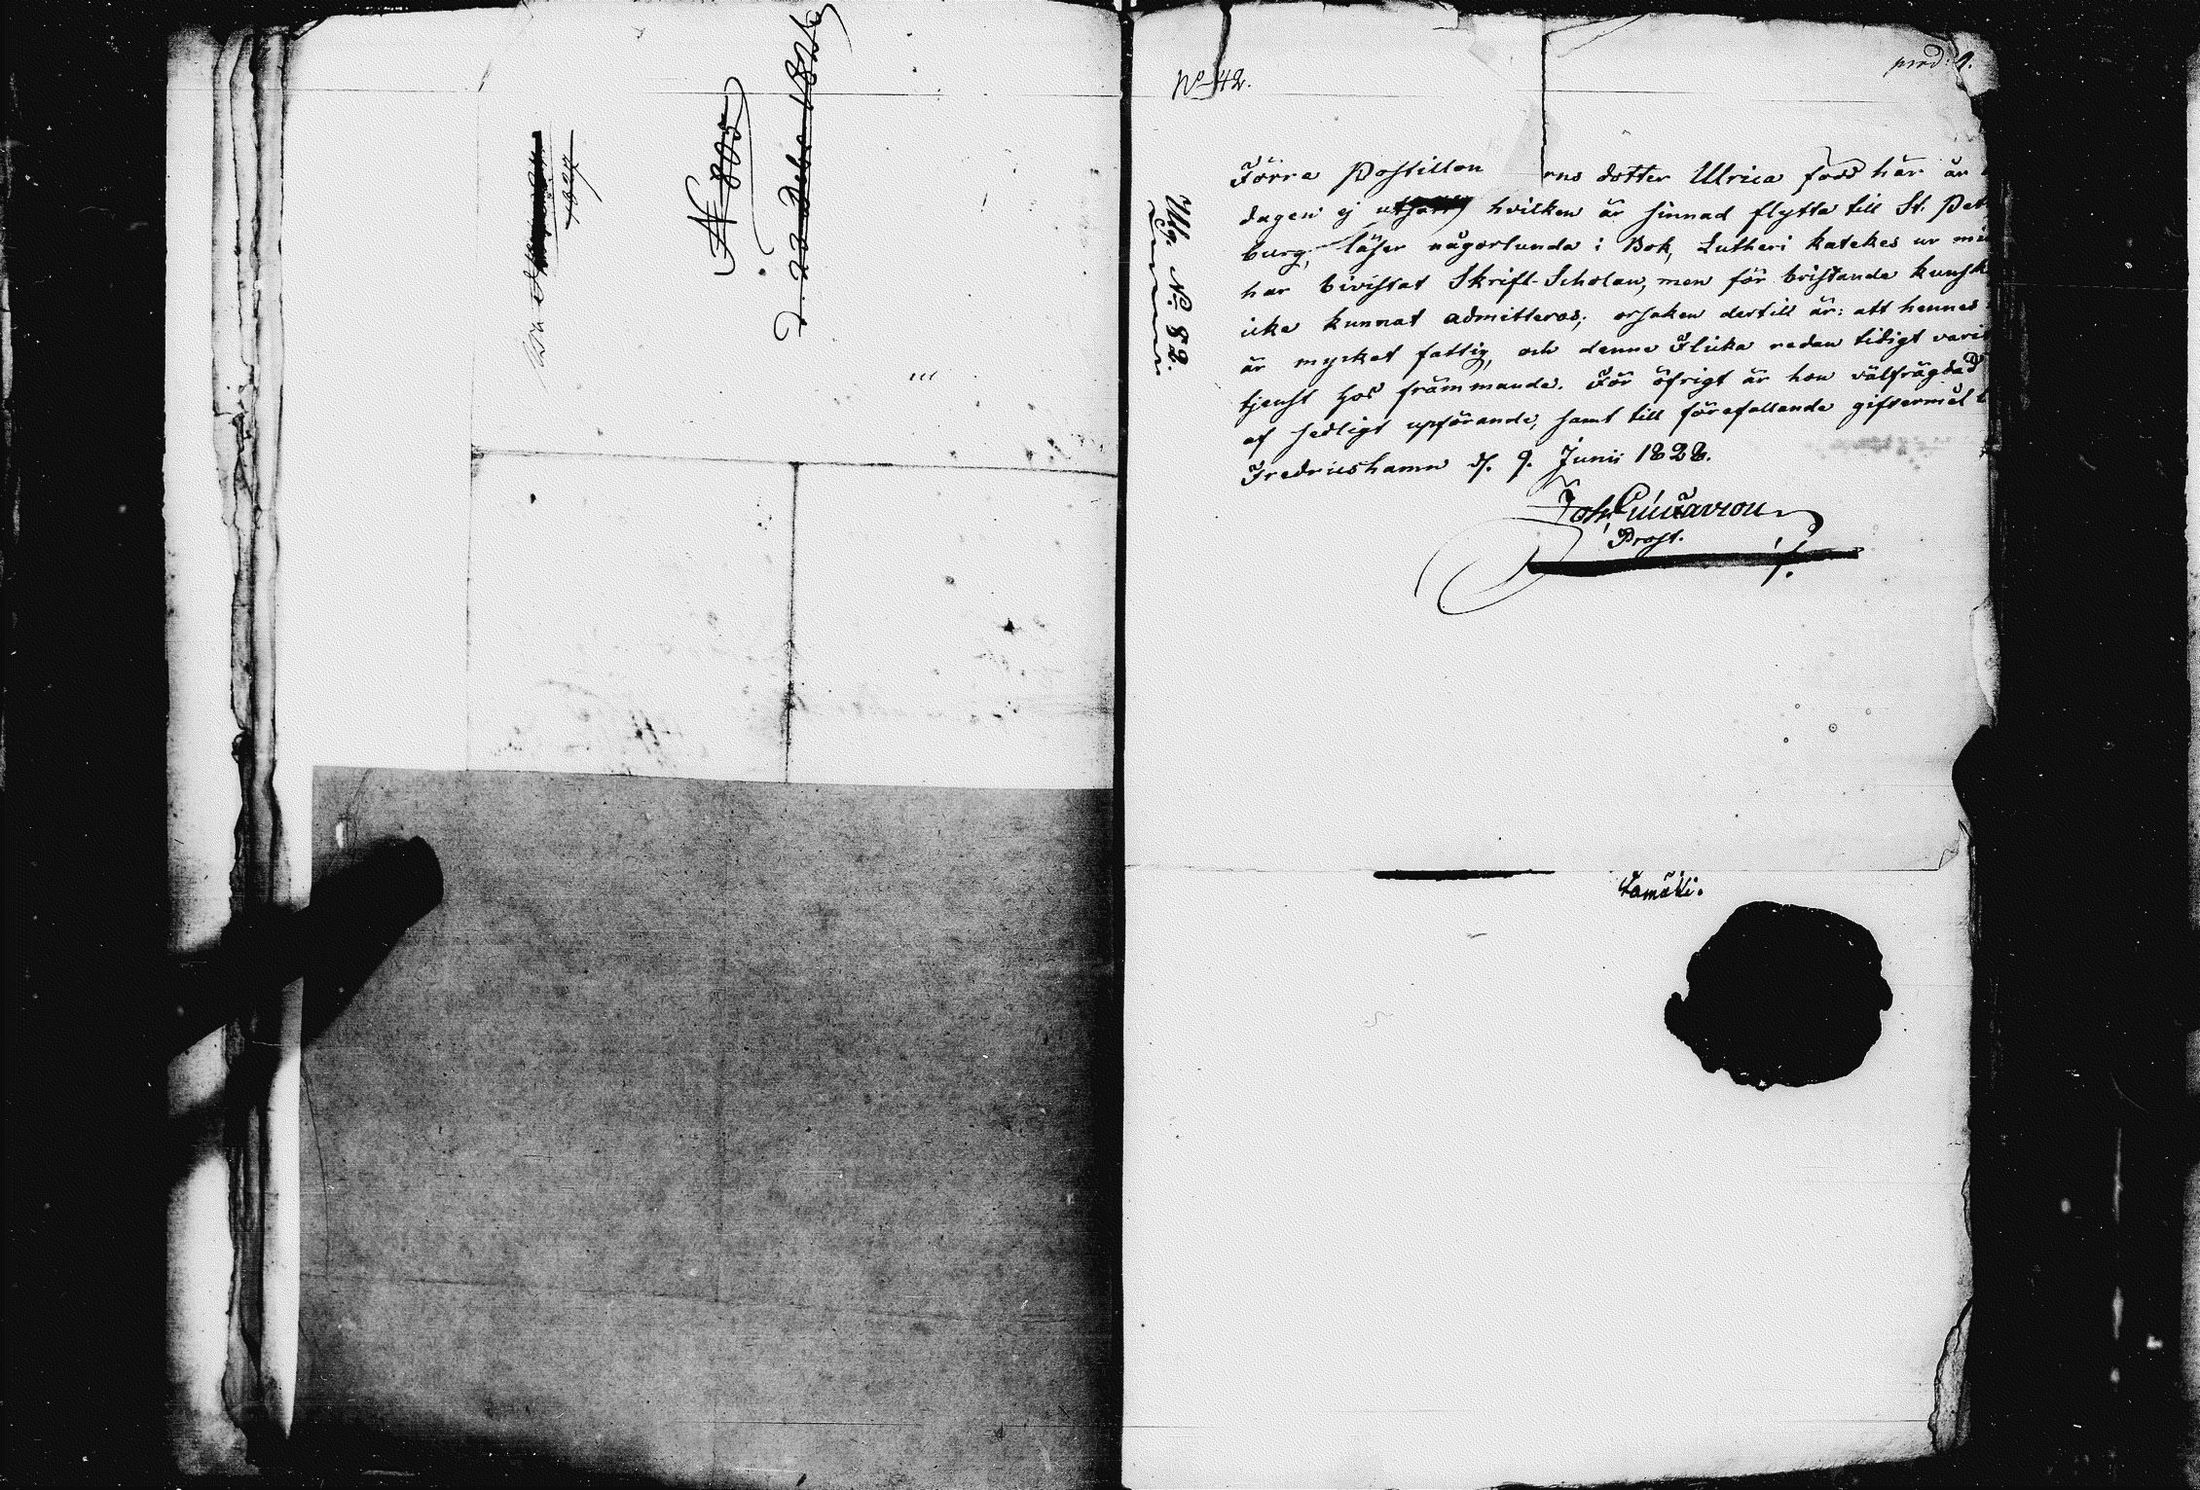 N 805
d. 23 Debr 1826
1827
No 42.
prod: 9.
Utg. No 82.
Förra Postillon rns dotter Ulrica född här är
dagen ej hvilken är sinnad flytta till St. Pet
burg, läser någorlunda i Bok, Lutheri katekes ur
har bivistat Skrift-Scholan, men för bristande kunsk
icke kunnat admitteras; orsaken dertill är: att hennes
är mycket fattig, och denne Flicka redan tidigt varit
tjenst hos främmande. För öfrigt är hon välfrägdad
af sedligt upförande, samt till förefallande giftermål
Fredricshamn d. 9. Junii 1828.
Joh.
Prost.